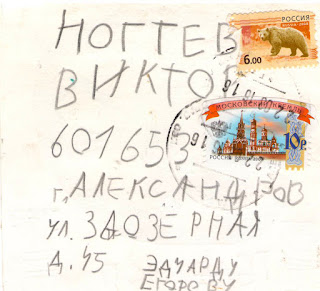 НОГТЕВ
ВИКТОР
601653
г. АЛЕКСАНДРОВ
ул. ЗАОЗЕРНАЯ
д. 45 ЭДУАРДУ
ЕГОРОВУ
РОССИЯ
6.00
МОСКОВСКИЙ КРЕМЛЬ
РОССИЯ
10р.